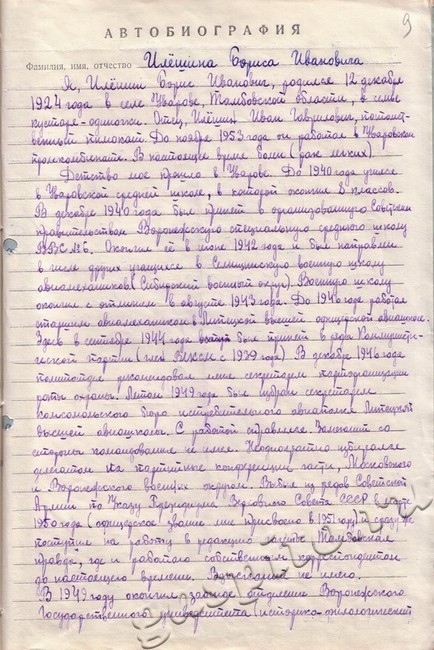 9
АВТОБИОГРАФИЯ
Фамилия, имя, отчество Илёшина Бориса Ивановича
Я, Илёшин Борис Иванович, родился 12 декабря
1924 года в селе Уварове, Тамбовской области, в семье
кустаря-одиночки. Отец, Илёшин Иван Гаврилович, потомст-
венный пимокат. До ноября 1953 года он работал в Уваровском
промкомбинате. В настоящее время болен (рак легких).
Детство мое прошло в Уварове. До 1940 года учился
в Уваровской средней школе, в которой окончил 8 классов.
В декабре 1940 года был принят в организованную Советским
правительством Воронежскую специальную среднюю школу
ВВС №6. Окончил её в июне 1942 года и был направлен
в числе других учащихся в военную школу
авиамехаников (Сибирский военный округ). Военную школу
окончил с отличием в августе 1943 года. До 1946 года работал
старшим авиамехаником в Липецкой высшей офицерской авиашколе.
Здесь в сентябре 1944 года был принят в ряды Коммунисти-
ческой партии (член ВЛКСМ с 1939 года). В декабре 1946 года
политотдел рекомендовал меня секретарем парторганизации
роты охраны. Летом 1949 года был избран секретарем
комсомольского бюро истребительного авиаполка Липецкой
высшей авиашколы. С работой справлялся. Замечаний со
стороны командования не имел. Неоднократно избирался
делегатом на партийные конференции части, Московского
и Воронежского военных округов. Выбыл из рядов Советской
Армии по Указу Президиума Верховного Совета СССР в
1950 года (офицерское звание мне присвоено в 1951 году) и сразу же
поступил на работу в редакцию газеты "Тамбовская
правда", где и работаю собственным корреспондентом
до настоящего времени. Взысканий не имею.
В 1949 году окончил заочное отделение Воронежского
Государственного университета (историко-филологический